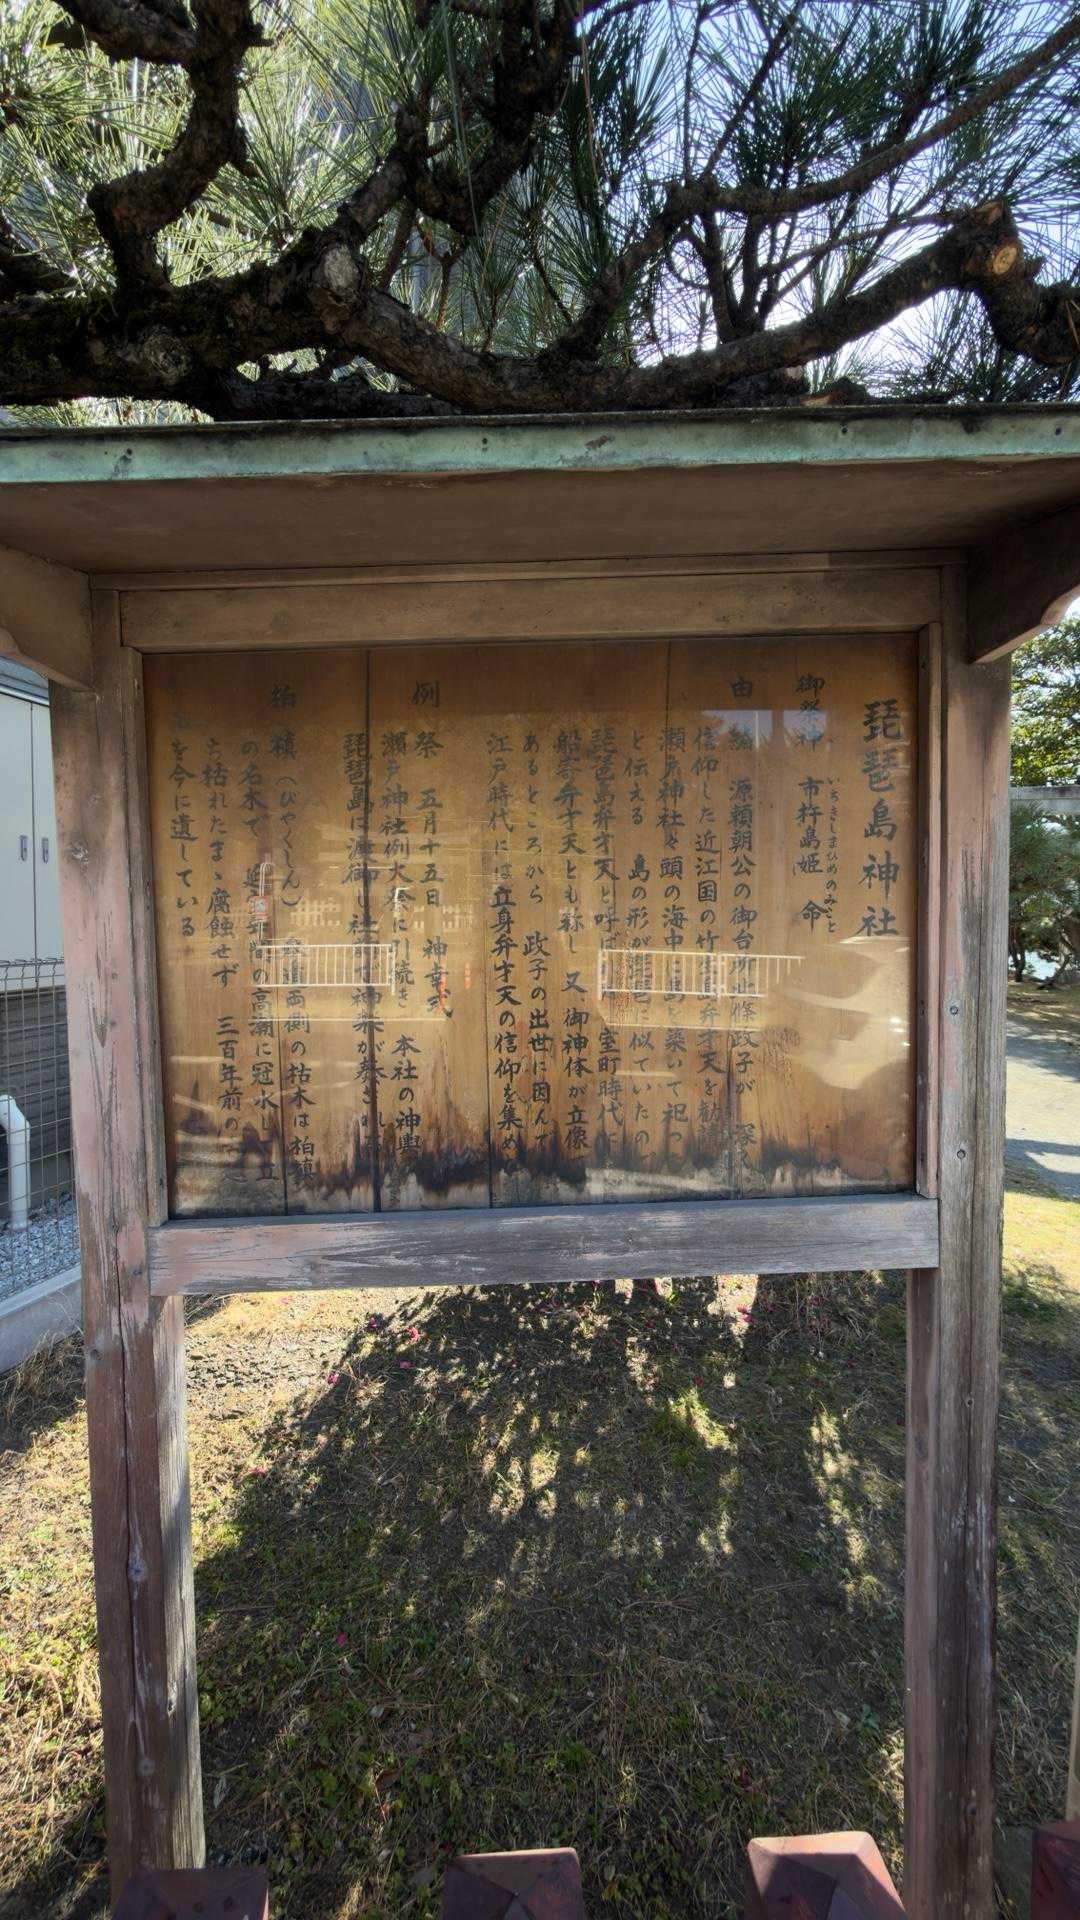 琵琶島神社
御祭神 市杵島姫 命
いちきしまひめのみこと
由緒 源頼朝公の御台所北條政子が 深く
信仰した近江国の竹生島弁才天を勧請
瀬戸神社々頭の海中に島を築いて祀つ
と伝える 島の形が琵琶に似ていたの
琵琶島弁才天と呼ば 室町時代に
船寄弁才天とも称し 又、御神体が立像
あるところから 政子の出世に因んで
江戸時代には立身弁才天の信仰を集め
例祭 五月十五日 神幸式
瀬戸神社例大祭に引続き 本社の神輿
琵琶島に渡御し社前で神楽が奏され
柏槙（びゃくしん） 参道両側の枯木は柏槙
の名木で 延宝年間の高潮に冠水し 立
ち枯れたまゝ腐蝕せず 三百年前の
を今に遺している